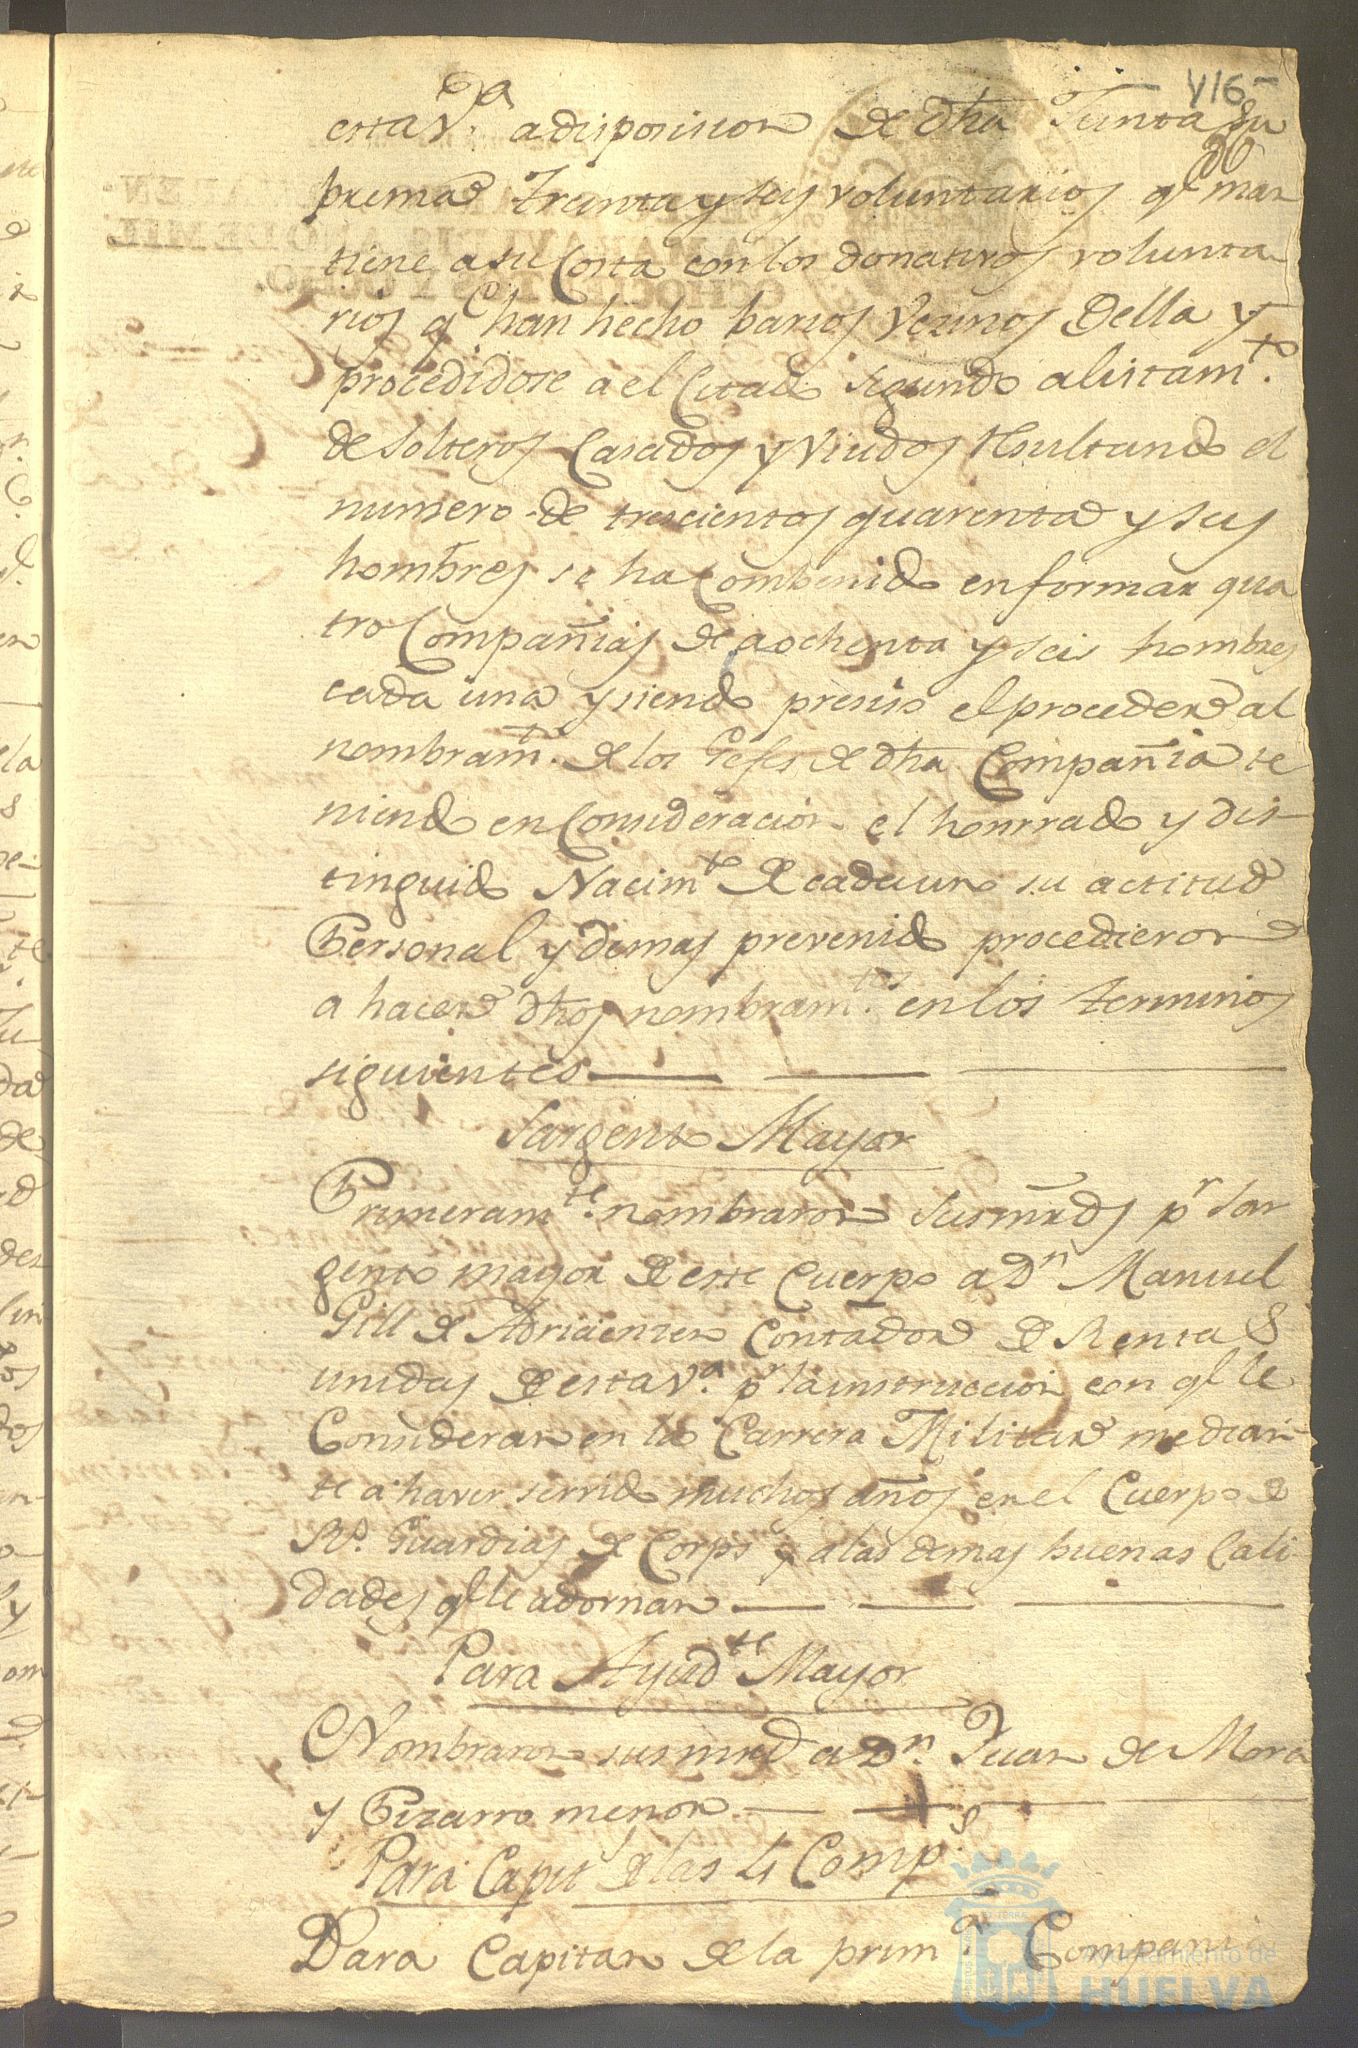 116
esta V.ª a disposision de dha Junta Su
prema treinta y seis voluntarios qᵉ man
tiene a su Costa con los donativos volunta-
rios qᵉ han hecho barios Vezinos Della y
procedidose a el Citado segundo alistamᵗᵒ.
de Solteros Casados y Viudos resultando el
numero de trescientos quarenta y seis
hombres se ha Combenido en formar qua
tro Compañias de a ochenta y seis hombres
cada una y siendo presiso el proceder al
nombramᵗᵒ. de los Gefes de dha Compañia te
niendo en Consideracion el honrrado y dis-
tinguido Nacimᵗᵒ de cada uno su actitud
Personal y demas prevenido procedieron
a hacer dhos nombramᵗᵒˢ. en los terminos
siguientes
Sargento Mayor
Primeramᵗᵉ. nombraron sus mrds pʳ Sar
gento mayor de este Cuerpo a Dⁿ Manuel
Gill de Contador de Rentas
unidas de esta V.ª pʳ la instruccion con qᵉ le
Consideran en la Carrera Militar median-
te a haver servido muchos años en el Cuerpo de
Rˢ. Guardias de Corps y a las demas buenas Cali
dades qᵉ le adornan
Para Ayudᵗᵉ Mayor
Nombraron sus mrd a Dⁿ. Juan de Mora
y Pizarro menor
Para Capit de las 4 Compˢ
Para Capitan de la primª. Compania
Ayuntamiento de
HUELVA